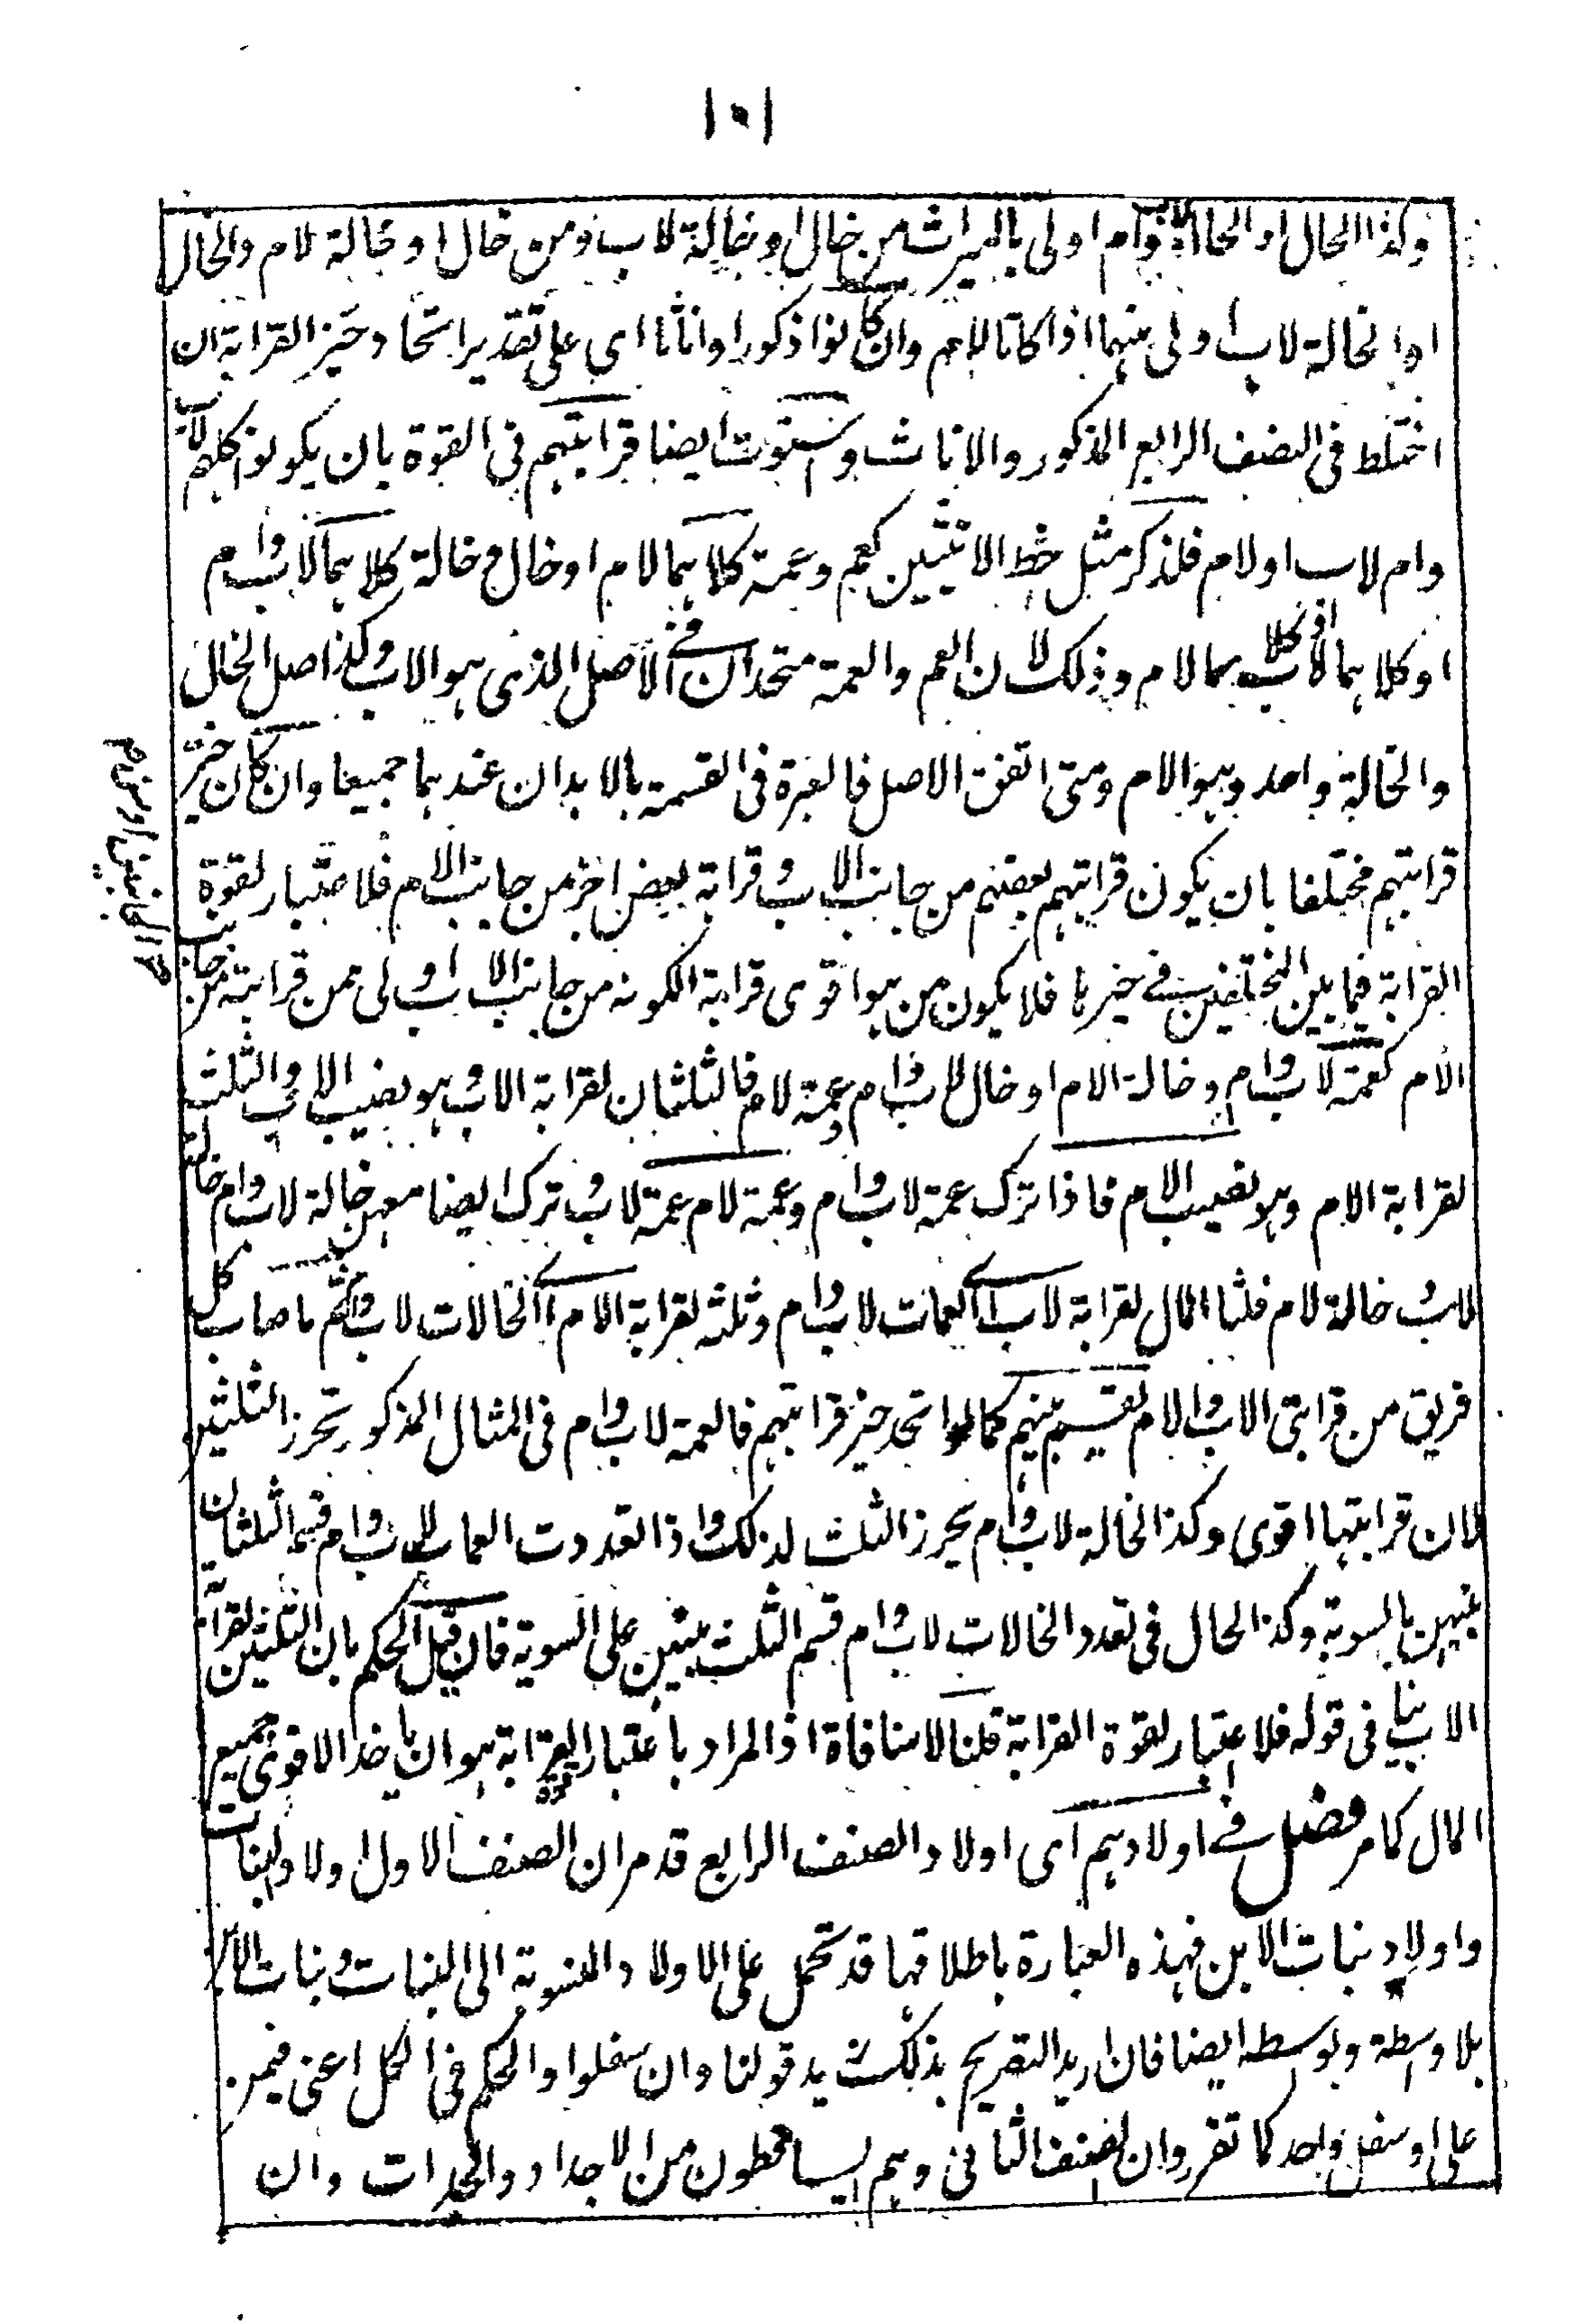 ١٠١
وكذا الحال او الخالة لاب وام اولى بالميراث من خال او خالة لاب ومن خال او خالة لام والخال
او الخالة لاب اولى منهما اذا كانا لام وان كانوا ذكورا واناثا اى على تقدير اتحاد حيز القرابة ان
اختلط فى الصنف الرابع الذكور والاناث واستوت ايضا قرابتهم فى القوة بان يكونوا كلهم لاب
وام او لاب او لام فللذكر مثل حظ الانثيين كعم وعمة كلاهما لام او خال وخالة كلاهما لاب وام
او كلاهما لاب او كلاهما لام وذلك لان العم والعمة متحدان فى الاصل الذى هو الاب وكذا اصل الخال
والخالة واحد وهو الام ومتى اتفق الاصل فالعبرة فى القسمة بالابدان عندهما جميعا وان كان حيز
قرابتهم مختلفا بان يكون قرابتهم بعضهم من جانب الاب و قرابة بعض اخر من جانب الام فلا اعتبار لقوة
القرابة فيما بين المختلفين فى حيزها فلا يكون من هو اقوى قرابة لكونه من جانب الاب اولى ممن قرابته من جانب
الام كعمة لاب وام وخالة الام او خال لاب وام وعمة لام فالثلثان لقرابة الاب وهو نصيب الاب والثلث
لقرابة الام وهو نصيب الام فاذا ترك عمة لاب وام وعمة لام وعمة لاب وترك ايضا معهن خالة لاب وام وخالة
لاب وخالة لام فثلثا المال لقرابة لاب اى العمات لاب وام وثلثه لقرابة الام اى الخالات لاب وام ثم ما اصاب كل
فريق من قرابتى الاب والام يقسم بينهم كما لو اتحد حيز قرابتهم فالعمة لاب وام فى المثال المذكور تحرز الثلثين
لان قرابتها اقوى وكذا الخالة لاب وام يحرز الثلث لذلك واذا تعددت العمات لاب وام قسم الثلثان
بينهن بالسوية وكذا الحال فى تعدد الخالات لاب وام قسم الثلث بينهن على السوية فان قيل الحكم بان الثلثين لقرابة
الاب ينافى قوله فلا اعتبار لقوة القرابة قلنا لا منافاة اذ المراد باعتبار القرابة هو ان ياخذ الاقوى جميع
المال كما مر فصل فى اولادهم اى اولاد الصنف الرابع قد مر ان الصنف الاول اولاد البنات
واولاد بنات الابن فهذه العبارة باطلاقها قد تحمل على الاولاد المنسوبة الى البنات وبنات الابن
بلا واسطة وبواسطه ايضا فان اريد التصريح بذلك يزيد قولنا وان سفلوا والحكم فى الكل اعنى فيمن
علا او سفل واحد كما تقرر وان الصنف الثانى وهم الساقطون من الاجداد والجدات وان